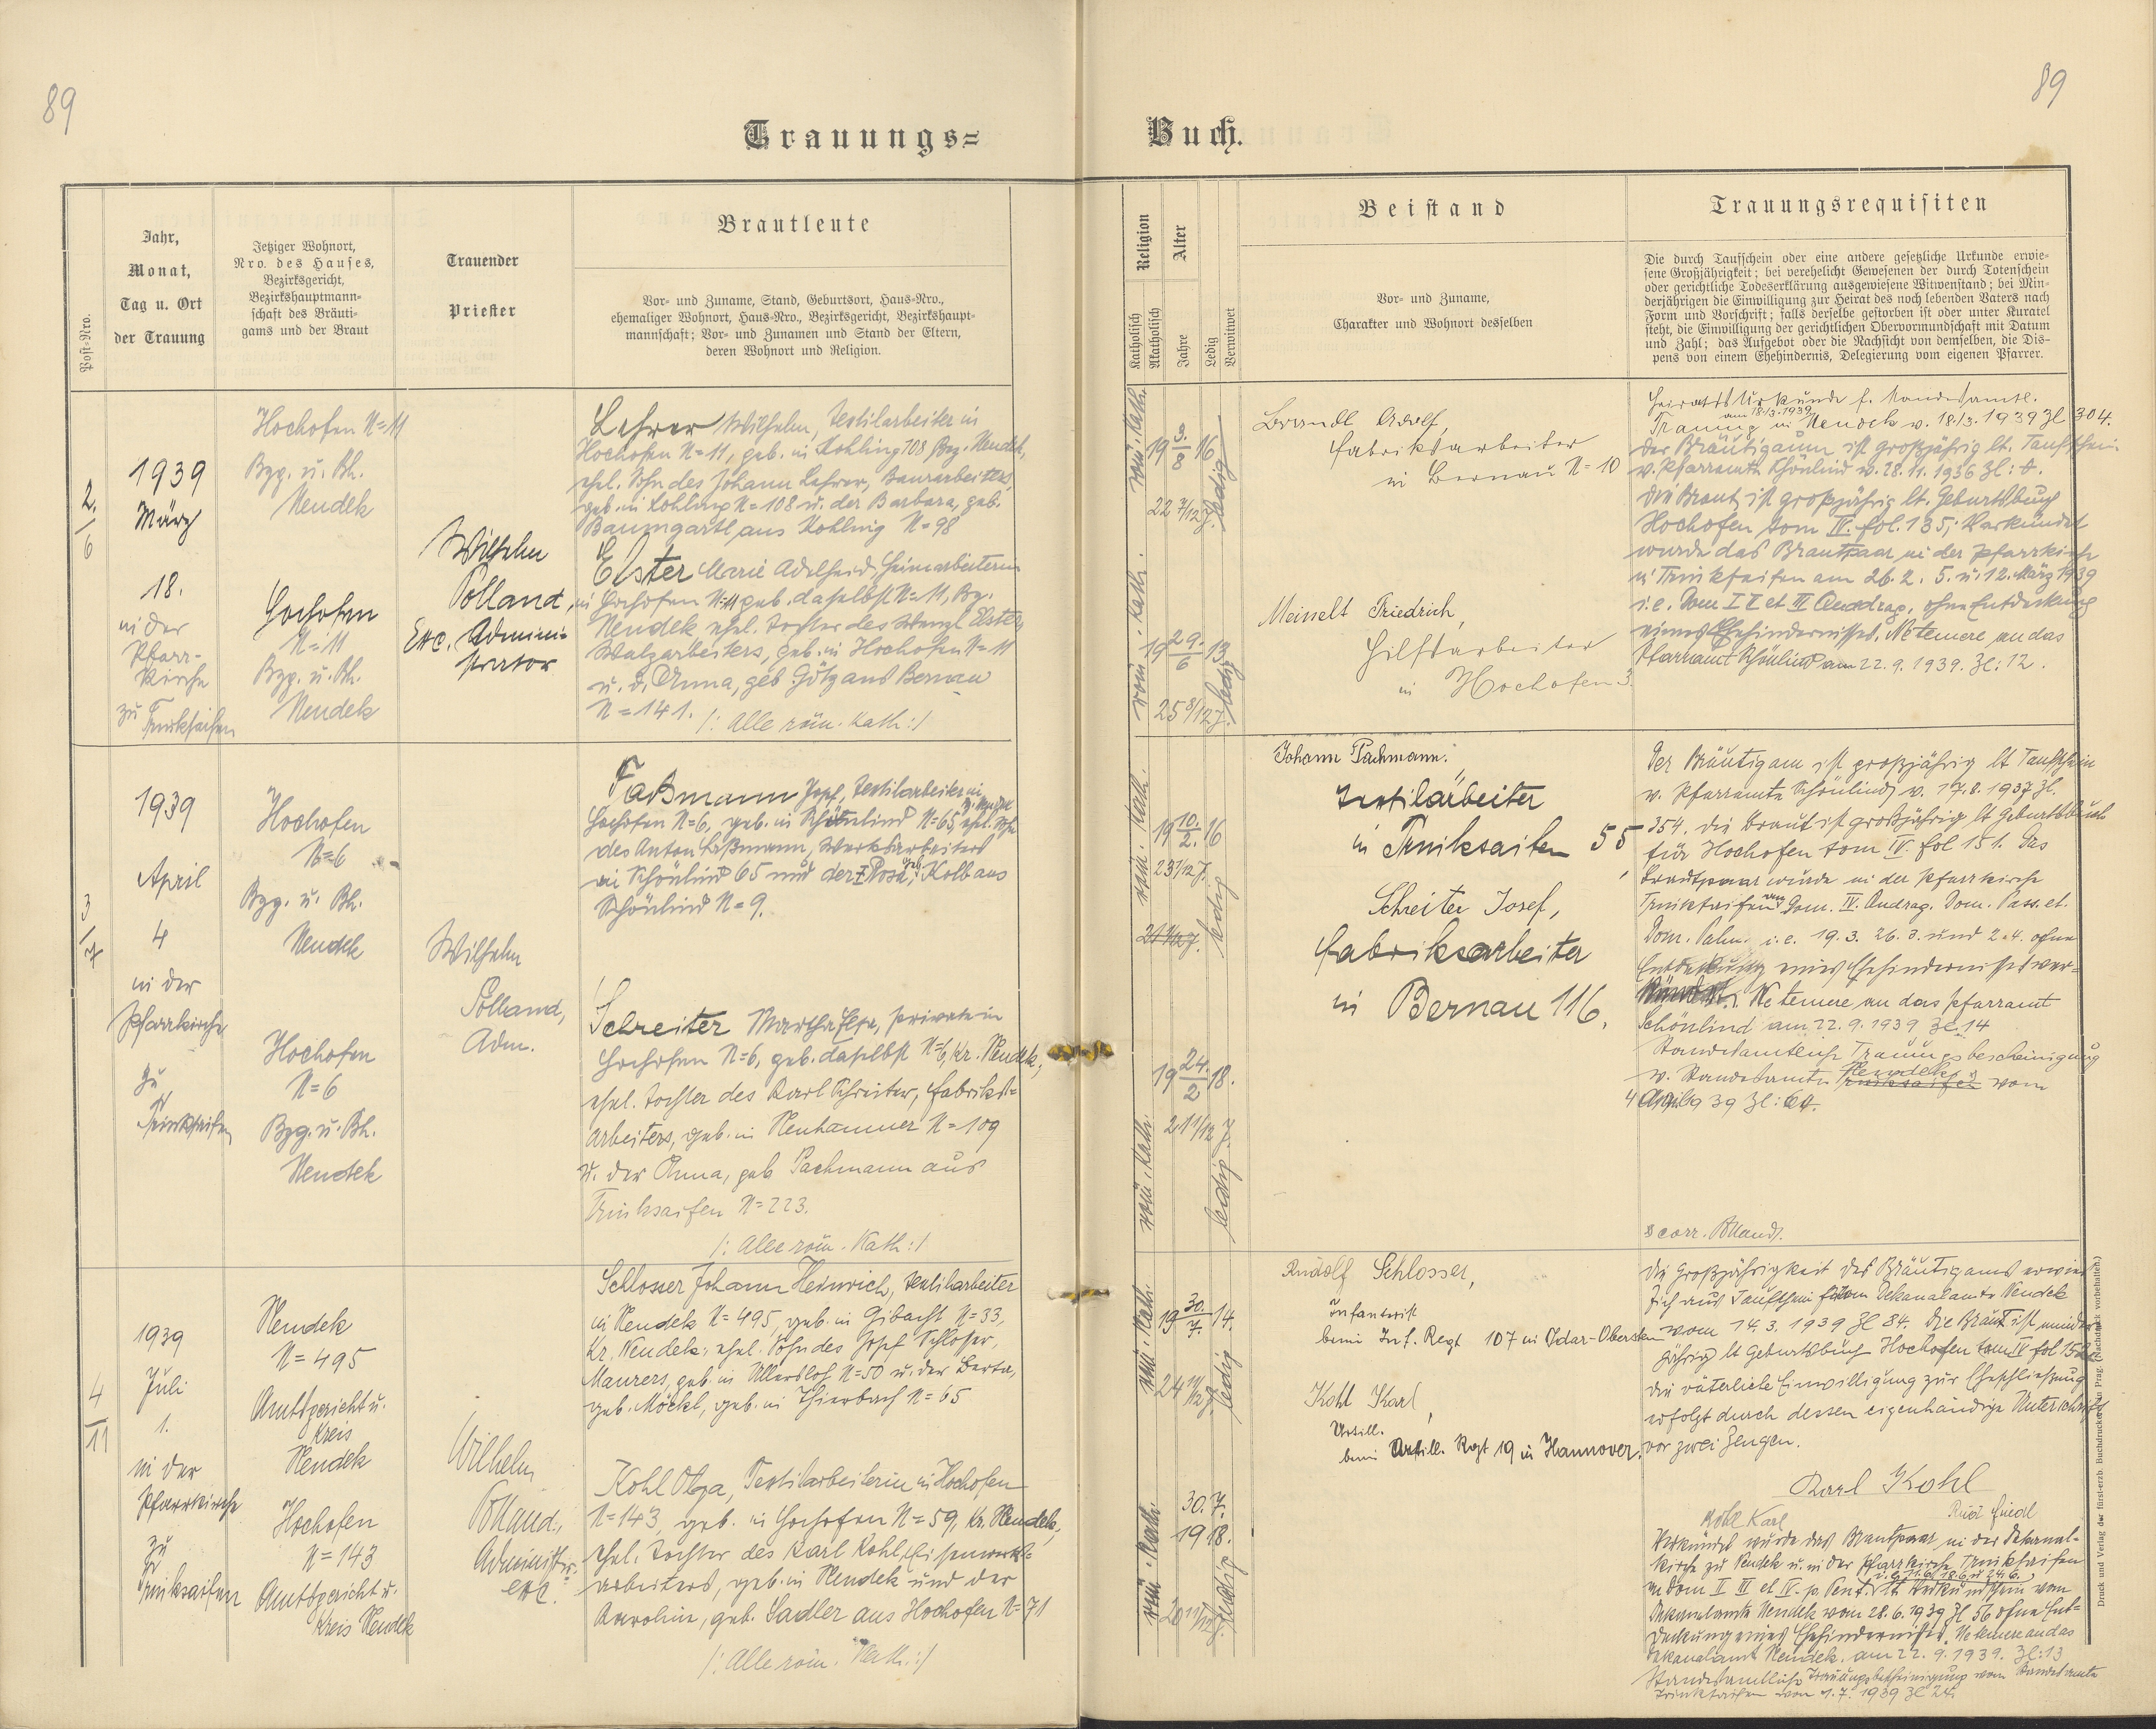 89
89
Trauungs=
Buch.
Post-Nro.
Jahr,
Monat,
Tag u. Ort
der Trauung
Jetziger Wohnort,
Nro. des Hauses,
Bezirksgericht,
Bezirkshauptmann=
schaft des Bräuti=
gams und der Braut
Trauender
Priester
Brautleute
Vor- und Zuname, Stand, Geburtsort, Haus-Nro.,
ehemaliger Wohnort, Haus-Nro., Bezirksgericht, Bezirkshaupt-
mannschaft; Vor- und Zunamen und Stand der Eltern,
deren Wohnort und Religion.
Religion
Katholisch
Akatholisch
Alter
Jahre
Ledig
Verwitwet
Beistand
Vor- und Zuname,
Charakter und Wohnort desselben
Trauungsrequisiten
Die durch Taufschein oder eine andere gesetzliche Urkunde erwie-
sene Großjährigkeit; bei verehelicht Gewesenen der durch Totenschein
oder gerichtliche Todeserklärung ausgewiesene Witwenstand; bei Min-
derjährigen die Einwilligung zur Heirat des noch lebenden Vaters nach
Form und Vorschrift; falls derselbe gestorben ist oder unter Kuratel
steht, die Einwilligung der gerichtlichen Obervormundschaft mit Datum
und Zahl; das Aufgebot oder die Nachsicht von demselben, die Dis-
pens von einem Ehehindernis, Delegierung vom eigenen Pfarrer.
2.
6
1939
März
18.
in der
Pfarr-
kirche
zu Trinksaifen
Hochofen N=11
Bzg. u. Bh.
Neudek
Hochofen
N=11
Bzg. u. Bh.
Neudek
Wilhelm
Polland,
Exc. Admini-
strator
Lehrer Wilhelm, Textilarbeiter in
Hochofen N=11, geb. in Kohling 108 Bzg. Neudek,
ehel. Sohn des Johann Lehrer, Bauarbeiters,
geb. in Kohling N=108 u. der Barbara, geb.
Baumgartl aus Kohling N=98
Elster Marie Adelheid, Heimarbeiterin
in Hochofen N=11 geb. daselbst N=11, Bz.
Neudek, ehel. Tochter des Wenzl Elster,
Walzarbeiters, geb. in Hochofen N=11
u. d. Anna, geb. Götz aus Bernau
N=141. /: Alle röm. Kath:/
röm. Kath.
19 3./8 16
22 7/12 J.
ledig
röm. Kath.
19 29./6 13
25 8/12 J.
ledig
Brandl Adolf,
Fabriksarbeiter
in Bernau N=10
Meinelt Friedrich,
Hilfsarbeiter
in Hochofen 3.
Heiratsurkunde f. standesamtl.
am 18./3. 1939
Trauung in Neudek v. 18./3. 1939 Zl 304.
Der Bräutigam ist großjährig lt. Taufschein
v. Pfarramte Schönlind v. 28.11.1936 Zl:
Die Braut ist großjährig lt. Geburtsbuch
Hochofen tom IV. fol. 135; Verkündet
wurde das Brautpaar in der Pfarrkirche
in Trinksaifen am 26.2. 5. u. 12. März 1939
i.e. Dom I II et III Quadrag. ohne Entdeckung
eines Ehehindernisses. Ne temere an das
Pfarramt Schönlind am 22.9.1939. Zl: 12.
3
7
1939
April
4
in der
Pfarrkirche
zu
Trinksaifen
Hochofen
N=6
Bzg. u. Bh.
Neudek
Hochofen
N=6
Bzg. u. Bh.
Neudek
Wilhelm
Polland,
Adm.
Faßmann Josef, Textilarbeiter in
Hochofen N=6, geb. in Schönlind N=65, ehel. Sohn
des Anton Faßmann, Werksarbeiters
in Schönlind 65 und der Rosa, geb. Kolb aus
Schönlind N=9.
Schreiter Martha Elsa, private in
Hochofen N=6, geb. daselbst N=6, Kr. Neudek,
ehel. Tochter des Karl Schreiter, Fabriks=
arbeiters, geb. in Neuhammer N=109
u. der Anna, geb Pachmann aus
Trinksaifen N=223.
/: Alle röm. Kath:/
röm. Kath.
19 10./2. 16
23 1/12 J.
ledig
röm. Kath.
19 24./2 18.
21 1/12 J.
ledig
Johann Pachmann.
Textilarbeiter
in Trinksaifen 55,
Schreiter Josef,
Fabriksarbeiter
in Bernau 116.
Der Bräutigam ist großjährig lt Taufschein
v. Pfarramte Schönlind v. 17.8.1937 Zl.
354. Die Braut ist großjährig lt Geburtsbuch
für Hochofen tom IV. fol 151. Das
Brautpaar wurde in der Pfarrkirche
Trinksaifen am Dom. IV. Quadrag. Dom. Pass. et.
Dom. Palm. i.e. 19.3. 26.3. und 2.4. ohne
Entdeckung eines Ehehindernisses ver=
kündet. Ne temere an das Pfarramt
Schönlind am 22.9.1939 Zl. 14
Standesamtliche Trauungsbescheinigung
v. Standesamte Neudek vom
4 April 39 Zl: 64.
corr. Polland.
4
11
1939
Juli
1.
in der
Pfarrkirche
zu
Trinksaifen
Neudek
N=495
Amtsgericht u.
Kreis
Neudek
Hochofen
N=143
Amtsgericht u.
Kreis Neudek
Wilhelm
Polland,
Administr.
exc.
Schlosser Johann Heinrich, Textilarbeiter
in Neudek N=495, geb. in Gibacht N=33,
Kr. Neudek; ehel. Sohn des Josef Schlosser,
Maurers, geb. in Ullersloh N=50 u. der Berta,
geb. Möckl, geb. in Thierbach N=65
Kohl Olga, Textilarbeiterin in Hochofen
N=143, geb. in Hochofen N=59, Kr. Neudek,
ehel. Tochter des Karl Kohl, Eisenwerks=
arbeiters, geb. in Neudek und der
Karoline, geb. Sadler aus Hochofen N=71
/: Alle röm. Kath.:/
röm. Kath.
19 30./7. 14.
24 11/12 J.
ledig
röm. Kath.
30. 7.
1918.
20 11/12 J.
ledig
Rudolf Schlosser,
Infanterist
beim Inf. Regt 107 in Idar-Oberstein
Kohl Karl,
Artill.
beim Artill. Regt 19 in Hannover.
Die Großjährigkeit des Bräutigams erwies
sich aus Taufschein vom Dekanalamte Neudek
vom 14.3.1939 Zl 84. Die Braut ist minder
jährig lt Geburtsbuch Hochofen tom IV fol 152
Die väterliche Einwilligung zur Eheschließung
erfolgt durch dessen eigenhändige Unterschrift
vor zwei Zeugen.
Karl Kohl
Kohl Karl
Verkündet wurde das Brautpaar in der Dekanal-
kirche zu Neudek u. in der Pfarrkirche Trinksaifen
i.e. 11.6. 18.6. u 24.6.
am Dom II III et IV. p. Pent. lt. Verkündschein vom
Dekanalamte Neudek vom 28.6.1939 Zl 56 ohne Ent=
deckung eines Ehehindernisses. Ne temere an das
Dekanalamt Neudek. am 22.9.1939. Zl:13
Standesamtliche Trauungsbescheinigung vom Standesamte
Trinksaifen vom 1.7.1939 Zl 24.
Druck und Verlag der fürst-erzb. Buchdruckerei in Prag. (Nachdruck vorbehalten.)